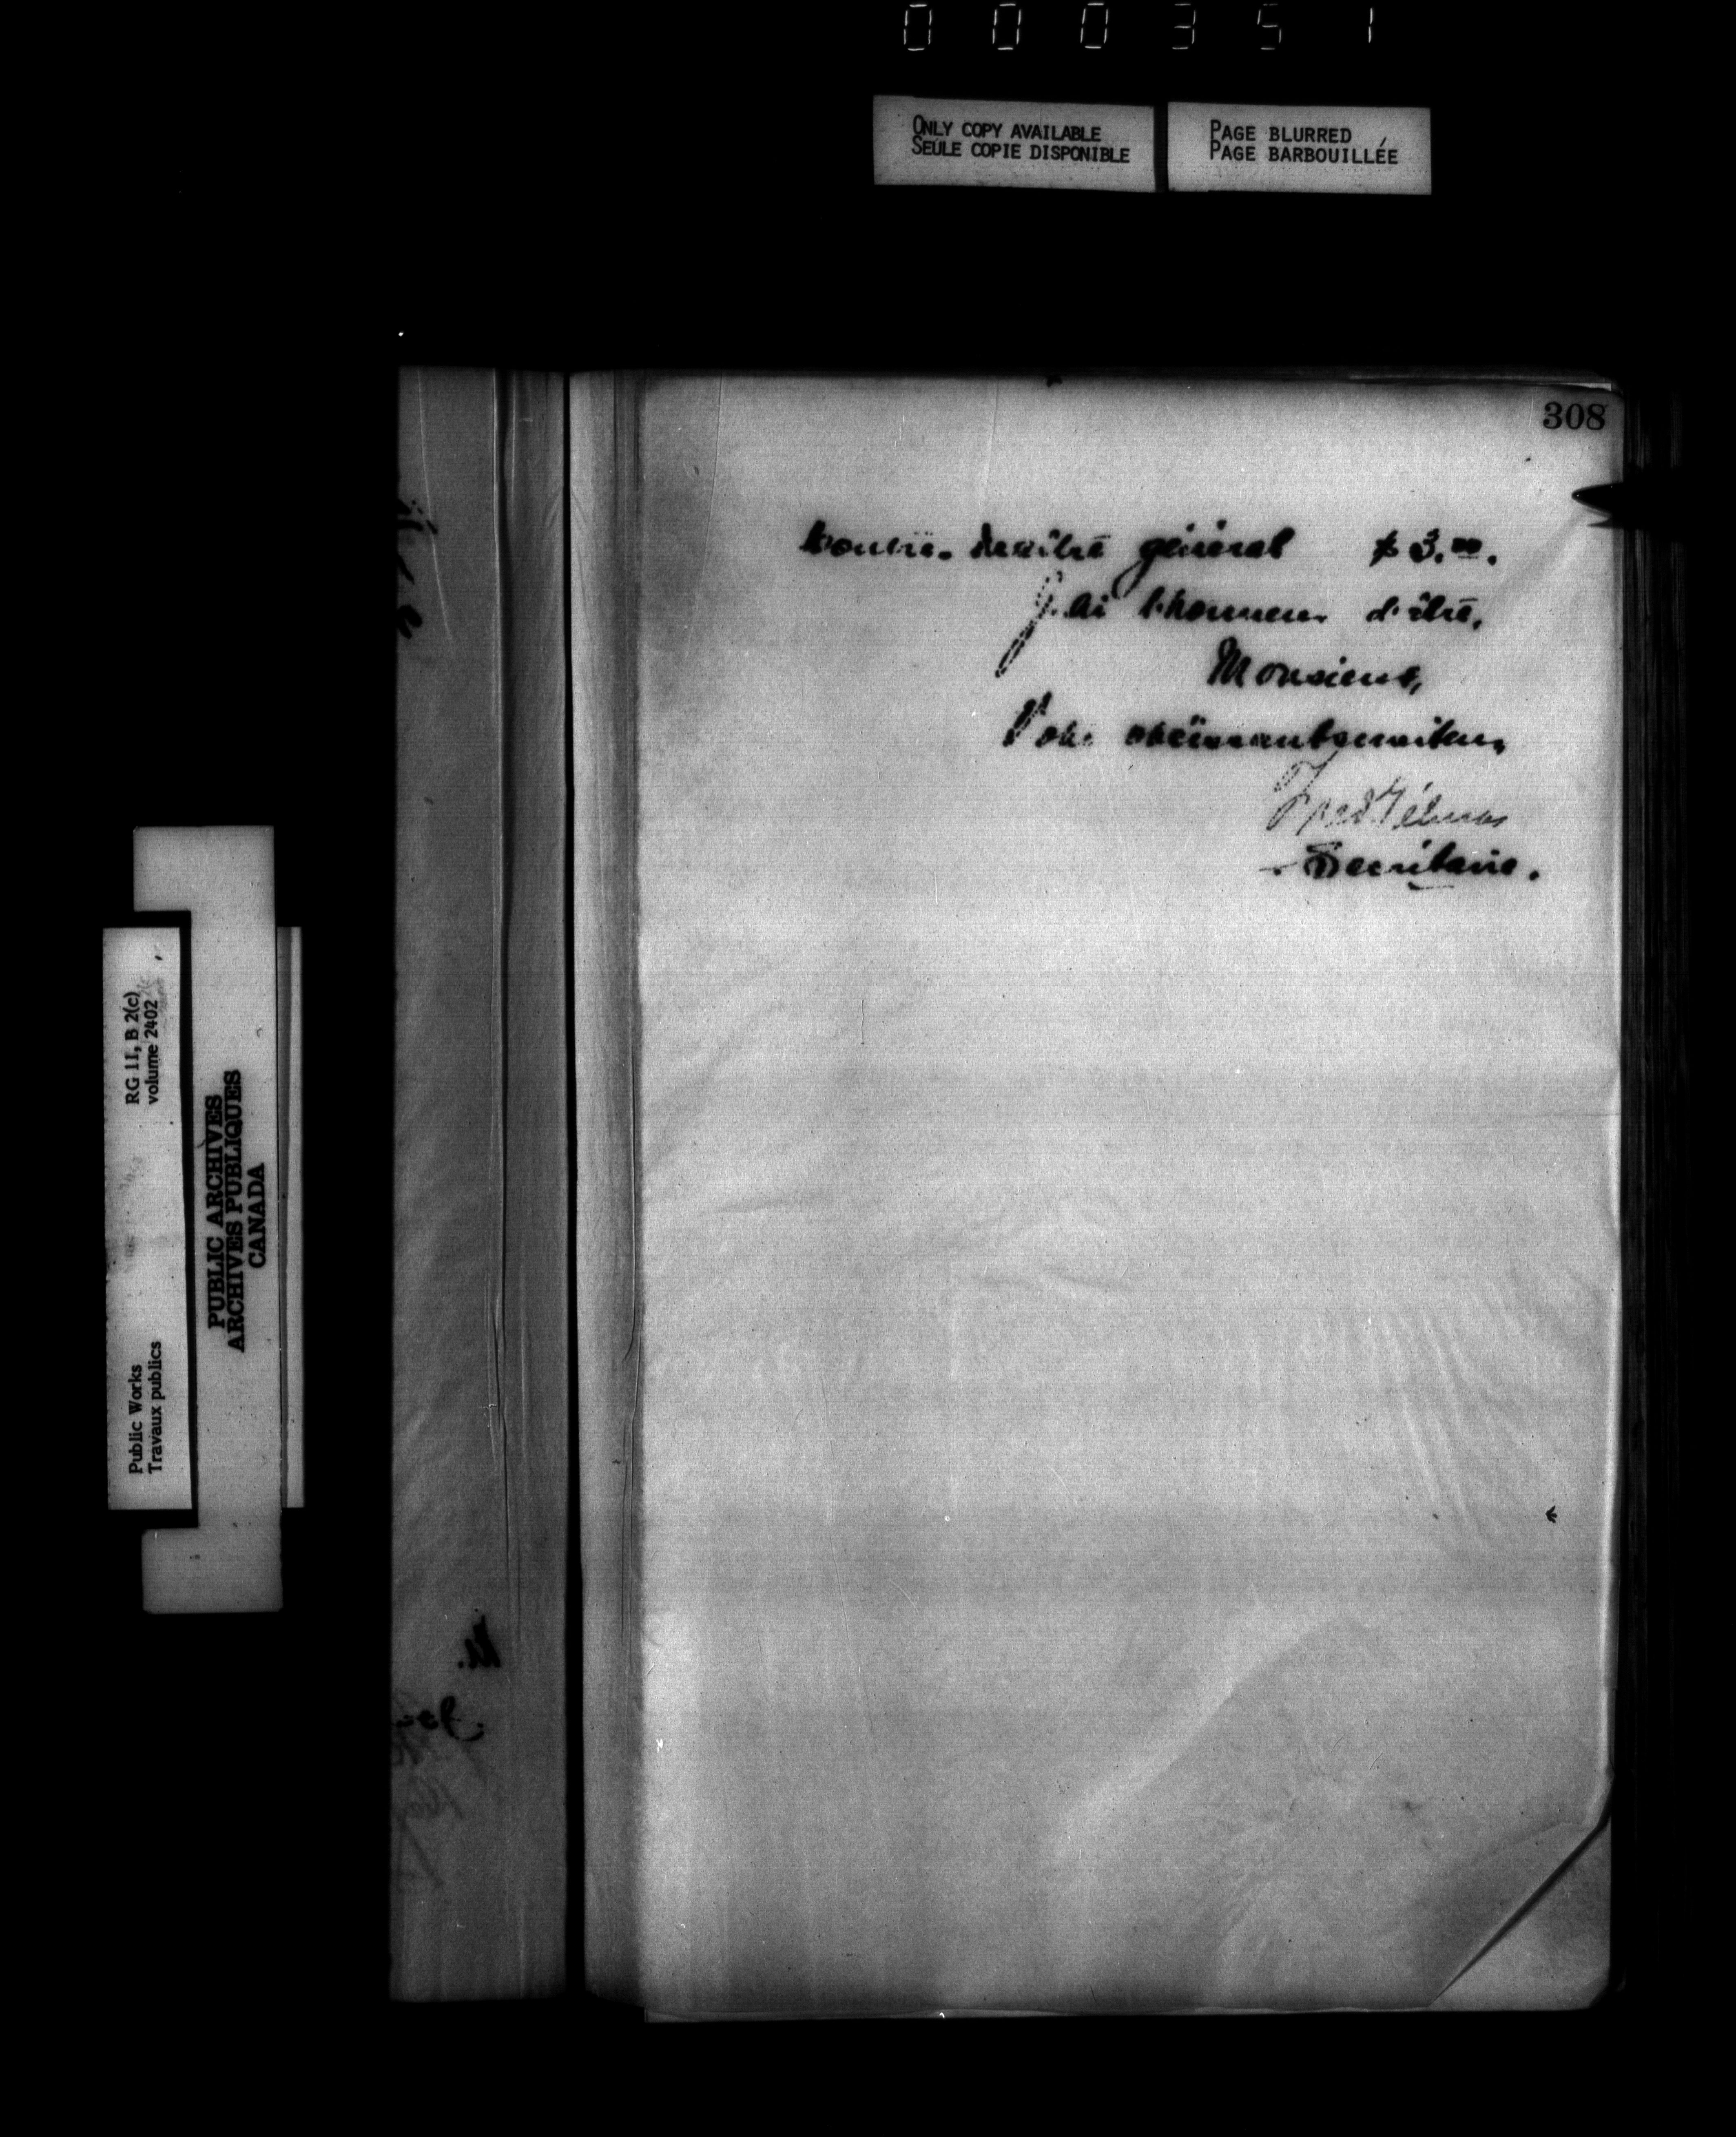 000351
ONLY COPY AVAILABLE
SEULE COPIE DISPONIBLE
PAGE BLURRED
PAGE BARBOUILLÉE
308
général $3.00.
J'ai l'honneur d'être,
Monsieur,
Votre obéissant serviteur,
Fred Gélinas
Secrétaire.
RG 11, B 2(c)
volume 2402
PUBLIC ARCHIVES
ARCHIVES PUBLIQUES
CANADA
Public Works
Travaux publics